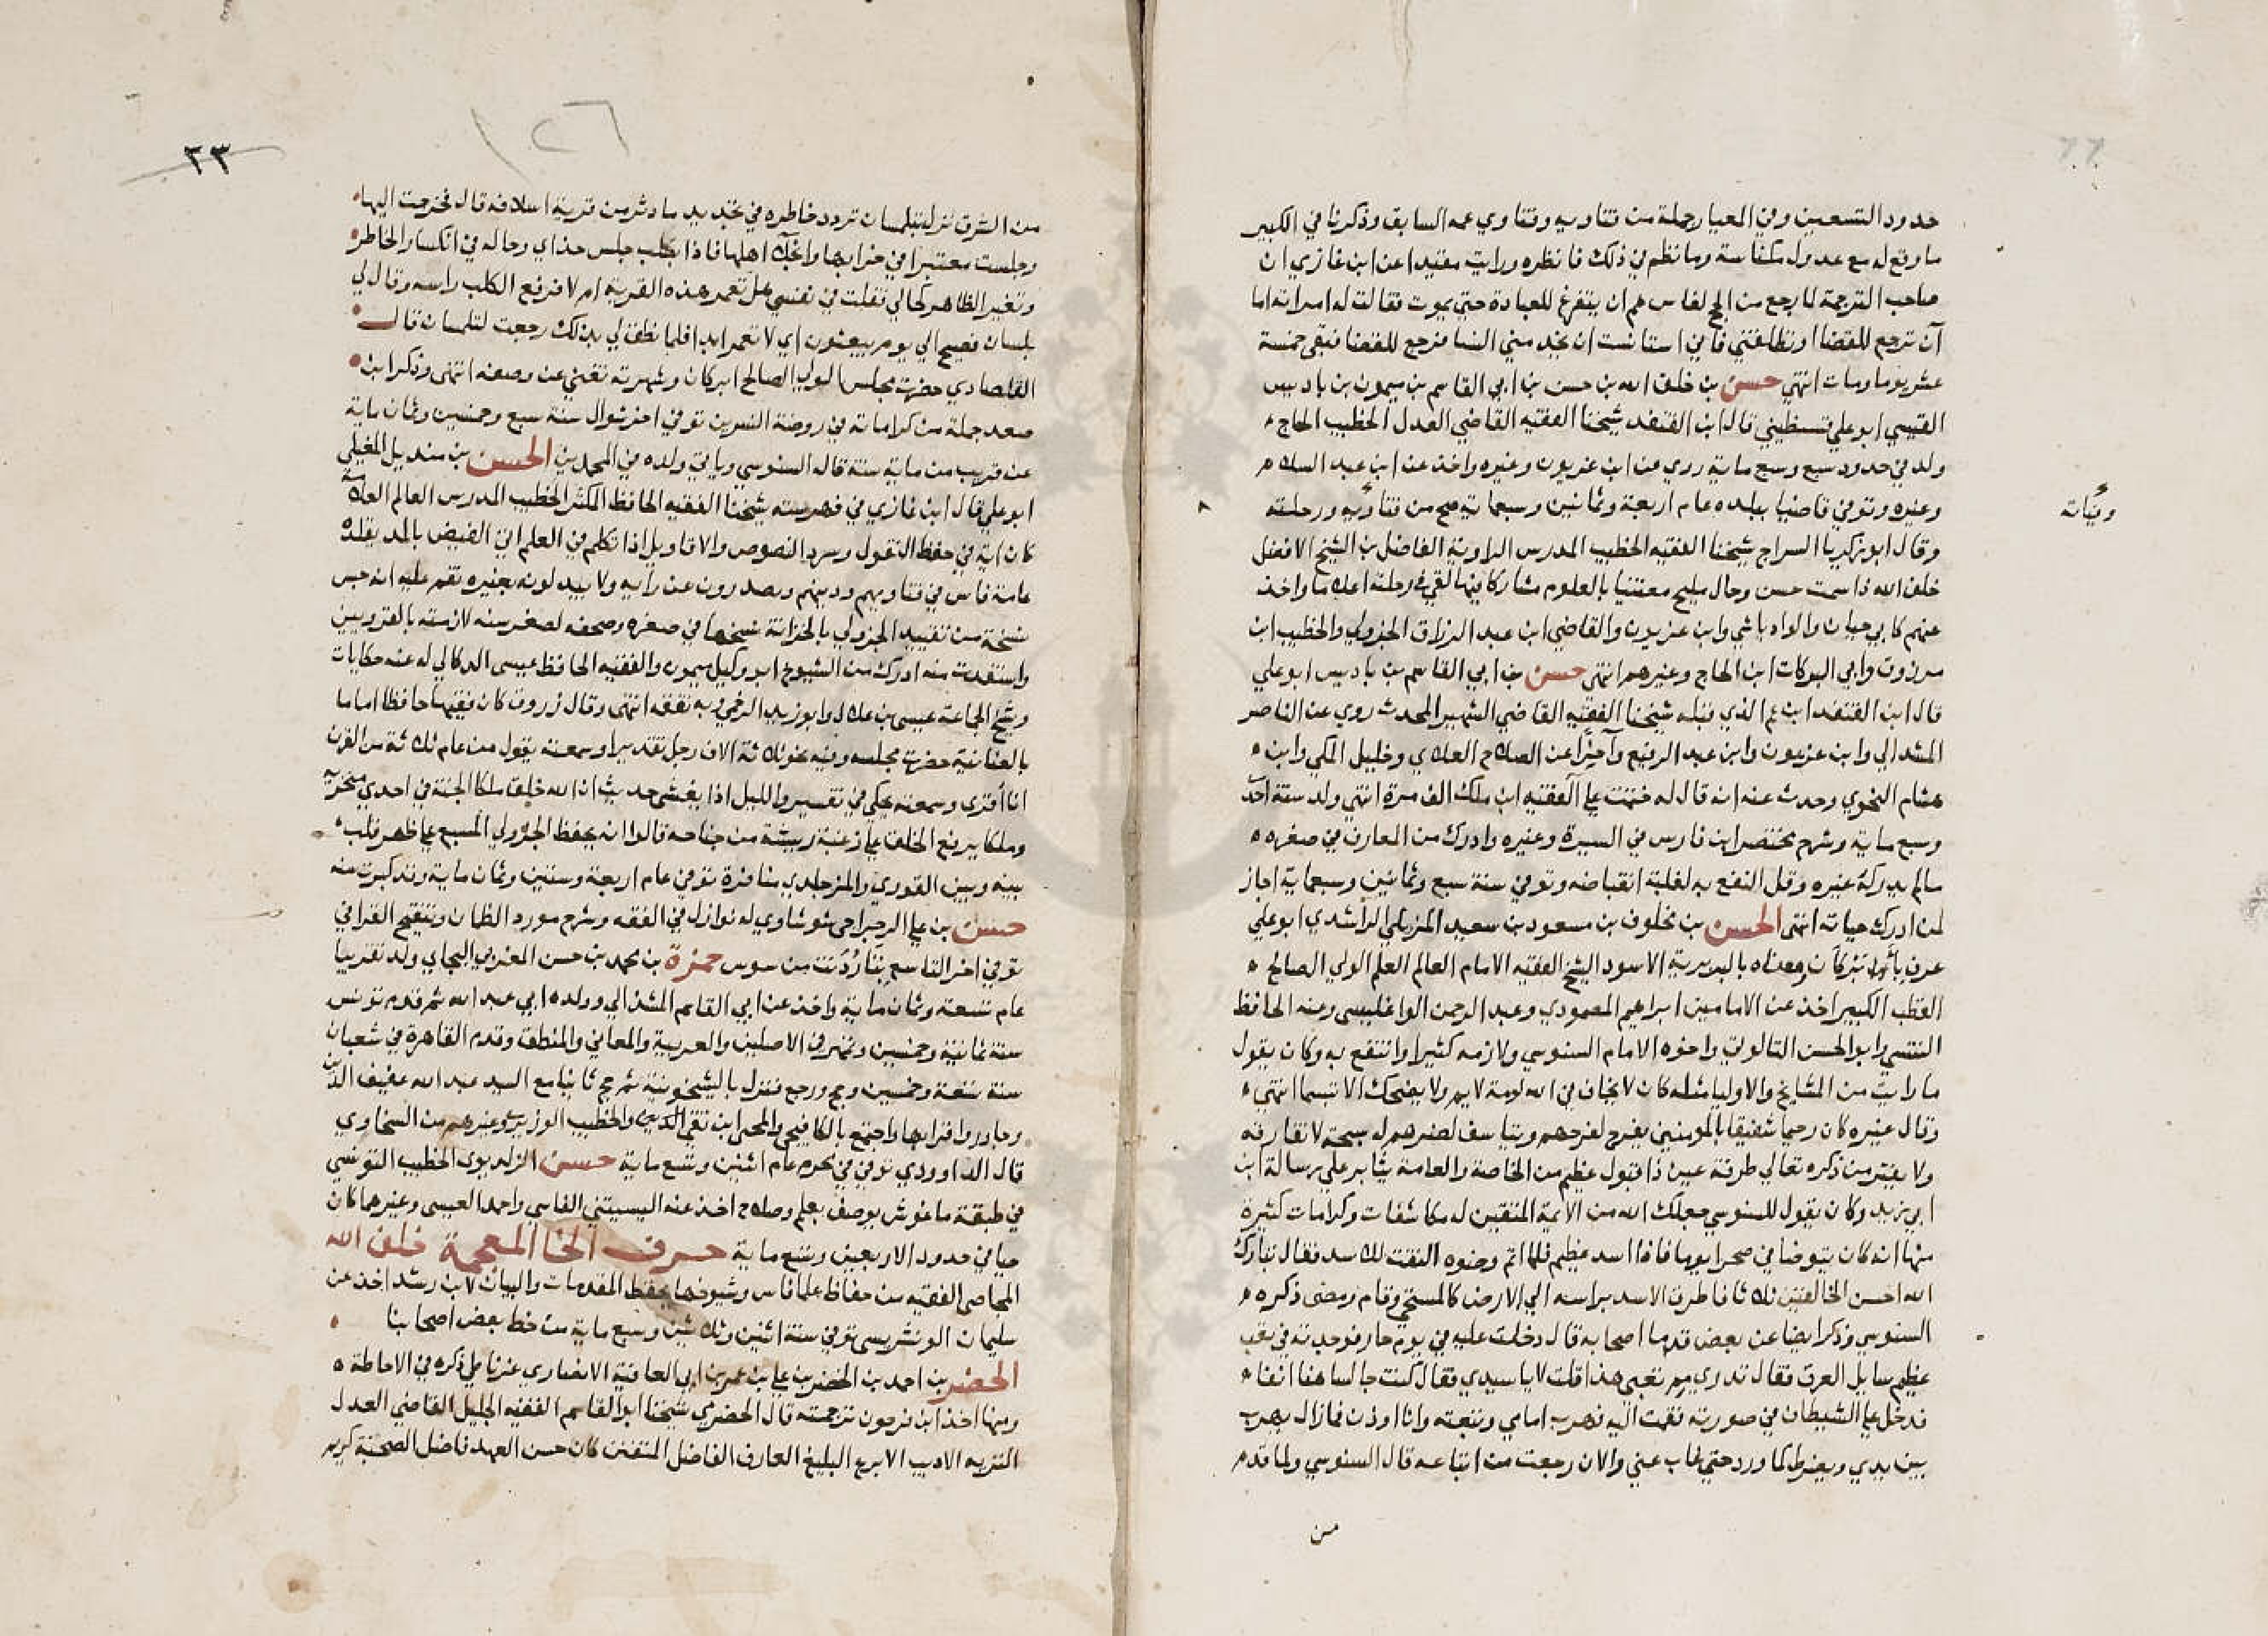 حدود التسعين وفي المعيار جملة من فتاويه وفتاوي عمه السابق وذكرنا في الكبير
ما وقع له مع عدول مكناسة وما نظم في ذلك فانظره ورايت مقيدا عن ابن غازي ان
صاحب الترجمة لما رجع من الحج لفاس هم ان يتفرغ للعبادة حتي يموت فقالت له امراته اما
آن ترجع للقضا او تطلقني فاني استانست ان تجد مني النسا فرجع للقضا فبقي خمسة
عشر يوما ومات انتهي حسن بن خلف الله بن حسن بن ابي القاسم بن ميمون بن باديس
القيسي ابو علي قسنطيني قال ابن القنفد شيخنا الفقيه القاضي العدل الخطيب الحاج
ولد في حدود سبع وسبع ماية روي عن ابن غريون وغيره واخذ عن ابن عبد السلام
وغيره وتوفي قاضيا ببلده عام اربعة وثمانين وسبعماية صح من فتاويه ورحلته
وفيات
وقال ابو زكريا السراج شيخنا الفقيه الخطيب المدرس الراوية الفاضل بن الشيخ الافضل
خلف الله ذا سمت حسن وحال مليح معتنيا بالعلوم مشاركا فيها لقي في رحلته اعلاما واخذ
عنهم كابي حيان والوادياشي وابن غريون والقاضي ابن عبد الرزاق الجزولي والخطيب ابن
مرزوق وابي البركات ابن الحاج وغيرهم انتهي حسن بن ابي القاسم بن باديس ابو علي
قال ابن القنفد ابن عم الذي قبله شيخنا الفقيه القاضي الشهير المحدث روي عن الناصر
المشدالي وابن غريون وابن عبد الرفيع وآخرا عن الصلاح العلاي وخليل المكي وابن
هشام النحوي وحدث عنه انه قال له ختمت علي الفقيه ابن ملك الف مرة انتهي ولد سنة احدي
وسبع ماية وشرح مختصر ابن فارس في السيرة وغيره وادرك من المعارف في صغره
مالم يدركه غيره وقل النفع به لغلبة انقباضه وتوفي سنة سبع وثمانين وسبعماية اجاز
لمن ادرك حياته انتهي الحسن بن مخلوف بن مسعود بن سعيد المزيلي الراشدي ابو علي
عرف بأبركان ومعناه بالبربرية الاسود الشيخ الفقيه الامام العالم العلم الولي الصالح
القطب الكبير اخذ عن الامامين ابراهيم المصمودي وعبد الرحمن الواغليسي وعنه الحافظ
التنسي وابو الحسن التالوتي واخوه الامام السنوسي ولازمه كثيرا وانتفع به وكان يقول
ما رايت من المشايخ والاوليا مثله كان لا يخاف في الله لومة لايم ولا يضحك الا تبسما انتهي
وقال غيره كان رحيما شفيقا بالمومنين يفرح لفرحهم ويتاسف لضرهم له سبحة لا تفارقه
ولا يفتر من ذكره تعالي طرفة عين ذا قبول عظيم من الخاصة والعامة يثابر علي رسالة ابن
ابي زيد وكان يقول للسنوسي جعلك الله من الايمة المتقين له مكاشفات وكرامات كثيرة
منها انه كان يتوضا في صحرا يوما فاذا اسد عظيم فلما اتم وضوه التفت للاسد فقال تبارك
الله احسن الخالقين ثلاثا فاطرق الاسد براسه الي الارض كالمستحي وقام ومضي ذكره
السنوسي وذكر ايضا عن بعض قدما اصحابه قال دخلت عليه في يوم حار فوجدته في تعب
عظيم سايل العرق فقال تدري مم تعبي هذا قلت لا يا سيدي فقال كنت جالسا هنا انفا
فدخل علي الشيطان في صورته فقمت اليه فهرب امامي وتبعته وانا اوذن فمازال يهرب
بين يدي ويضرط كما ورد حتي غاب عني والان رجعت من اتباعه قال السنوسي ولما قدم
من
٢٣
١٢٦
من الشرق نزل بتلمسان تردد خاطره في تجديد ما دثر من قرية اسلافه قال فخرجت اليها
وجلست معتبرا في خرابها وانجلا اهلها فاذا بكلب جلس حذاي وحاله في انكسار الخاطر
وتغير الظاهر كحالي فقلت في نفسي هل تعمر هذه القرية ام لا فرفع الكلب راسه وقال لي
بلسان فصيح الي يوم يبعثون اي لا تعمر ابدا فلما نطق لي بذلك رجعت لتلمسان قال
القلصادي حضرت مجلس الولي الصالح ابركان وشهرته تغني عن وصفه انتهي وذكر ابن
صعد جملة من كراماته في روضة النسرين توفي اخر شوال سنة سبع وخمسين وثمان ماية
عن قريب من ماية سنة قاله السنوسي وياتي ولده في المحمدين الحسن بن منديل المغيلي
ابو علي قال ابن غازي في فهرسته شيخنا الفقيه الحافظ المكثر الخطيب المدرس العالم العلامة
كان اية في حفظ النقول وسرد النصوص والاقاويل اذا تكلم في العلم اتي الفيض بالمد يقلده
عامة فاس في فتاويهم ودينهم ويصدرون عن رايه ولا يبدلونه بغيره نقم عليه انه حبس
نسخة من تقييد الجزولي بالخزانة نسخها في صغره وصحفه لصغر سنه لازمته بالقرويين
واستفدت منه ادرك من الشيوخ ابو وكيل ميمون والفقيه الحافظ عيسي الدكالي له عنه حكايات
وشيخ الجماعة عيسي بن علال وابو زيد الرقعي وبه تفقه انتهي وقال زروق كان فقيها حافظا اماما
بالعنانية حضرت مجلسه وفيه نحو ثلاثة الاف رجل تقديرا وسمعته يقول من عام ثلاثة من القرن
انا أقري وسمعته يحكي في تفسير والليل اذا يغشي حديث ان الله خلق ملكا الجنة في احدي منخريه
وملكا يرفع الخلق علي زغبة ريشة من جناحه قالوا انه يحفظ الجزولي المسبع علي ظهر قلب
بينه وبين القوري والمزجلدي منافرة توفي عام اربعة وستين وثمان ماية وتذكرت منه
حسن بن علي الرجراجي شوشاوي له نوازل في الفقه وشرح مورد الظمان وتنقيح القرافي
توفي اخر التاسع بتارُدَنت من سوس حمزة بن محمد بن حسن المغربي البجاي ولد تقريبا
عام تسعة وثمان ماية واخذ عن ابي القاسم المشذالي وولده ابي عبد الله ثم قدم تونس
سنة ثمانية وخمسين وتمهر في الاصلين والعربية والمعاني والمنطق وقدم القاهرة في شعبان
سنة تسعة وخمسين وحج ورجع فنزل بالشيخونية ثم حج ثانيا مع السيد عبد الله عفيف الدين
وجاور واقرا بها واجتمع بالكافيجي والمحب ابن تقي الدين والخطيب الوزيري وغيرهم من السخاوي
قال الداوودي توفي في نحوه عام اثنين وتسع ماية حسن الزلديوي الخطيب التونسي
في طبقة ماغوش يوصف بعلم وصلاح اخذ عنه اليسيتني الفاسي واحمد العيسي وغيرهما كان
حيا في حدود الاربعين وتسع ماية حرف الخا المعجمة خلف الله
المجاصي الفقيه من حفاظ علما فاس وشيوخها يحفظ المقدمات والبيان لابن رشد اخذ عن
سليمان الونشريسي توفي سنة اثنين وثلاثين وسبع ماية من خط بعض اصحابنا
الخضر بن احمد بن الخضر بن علي بن عمر بن ابي العافية الانصاري غرناطي ذكره في الاحاطة
ومنها اخذ ابن فرحون ترجمته قال الحضرمي شيخنا ابو القاسم الفقيه الجليل القاضي العدل
النزيه الاديب الابرع البليغ العارف الفاضل المتفنن كان حسن العهد فاضل الصحبة كريم